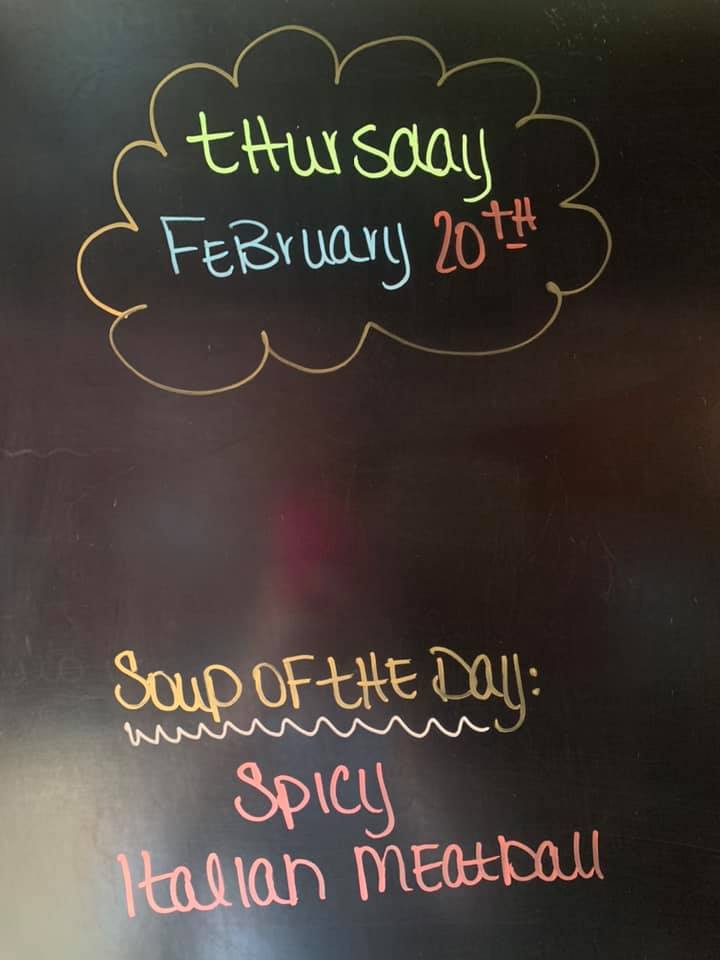 tHursday
FEBruary 20tH
Soup OF tHE Day:
Spicy
Italian MEatball